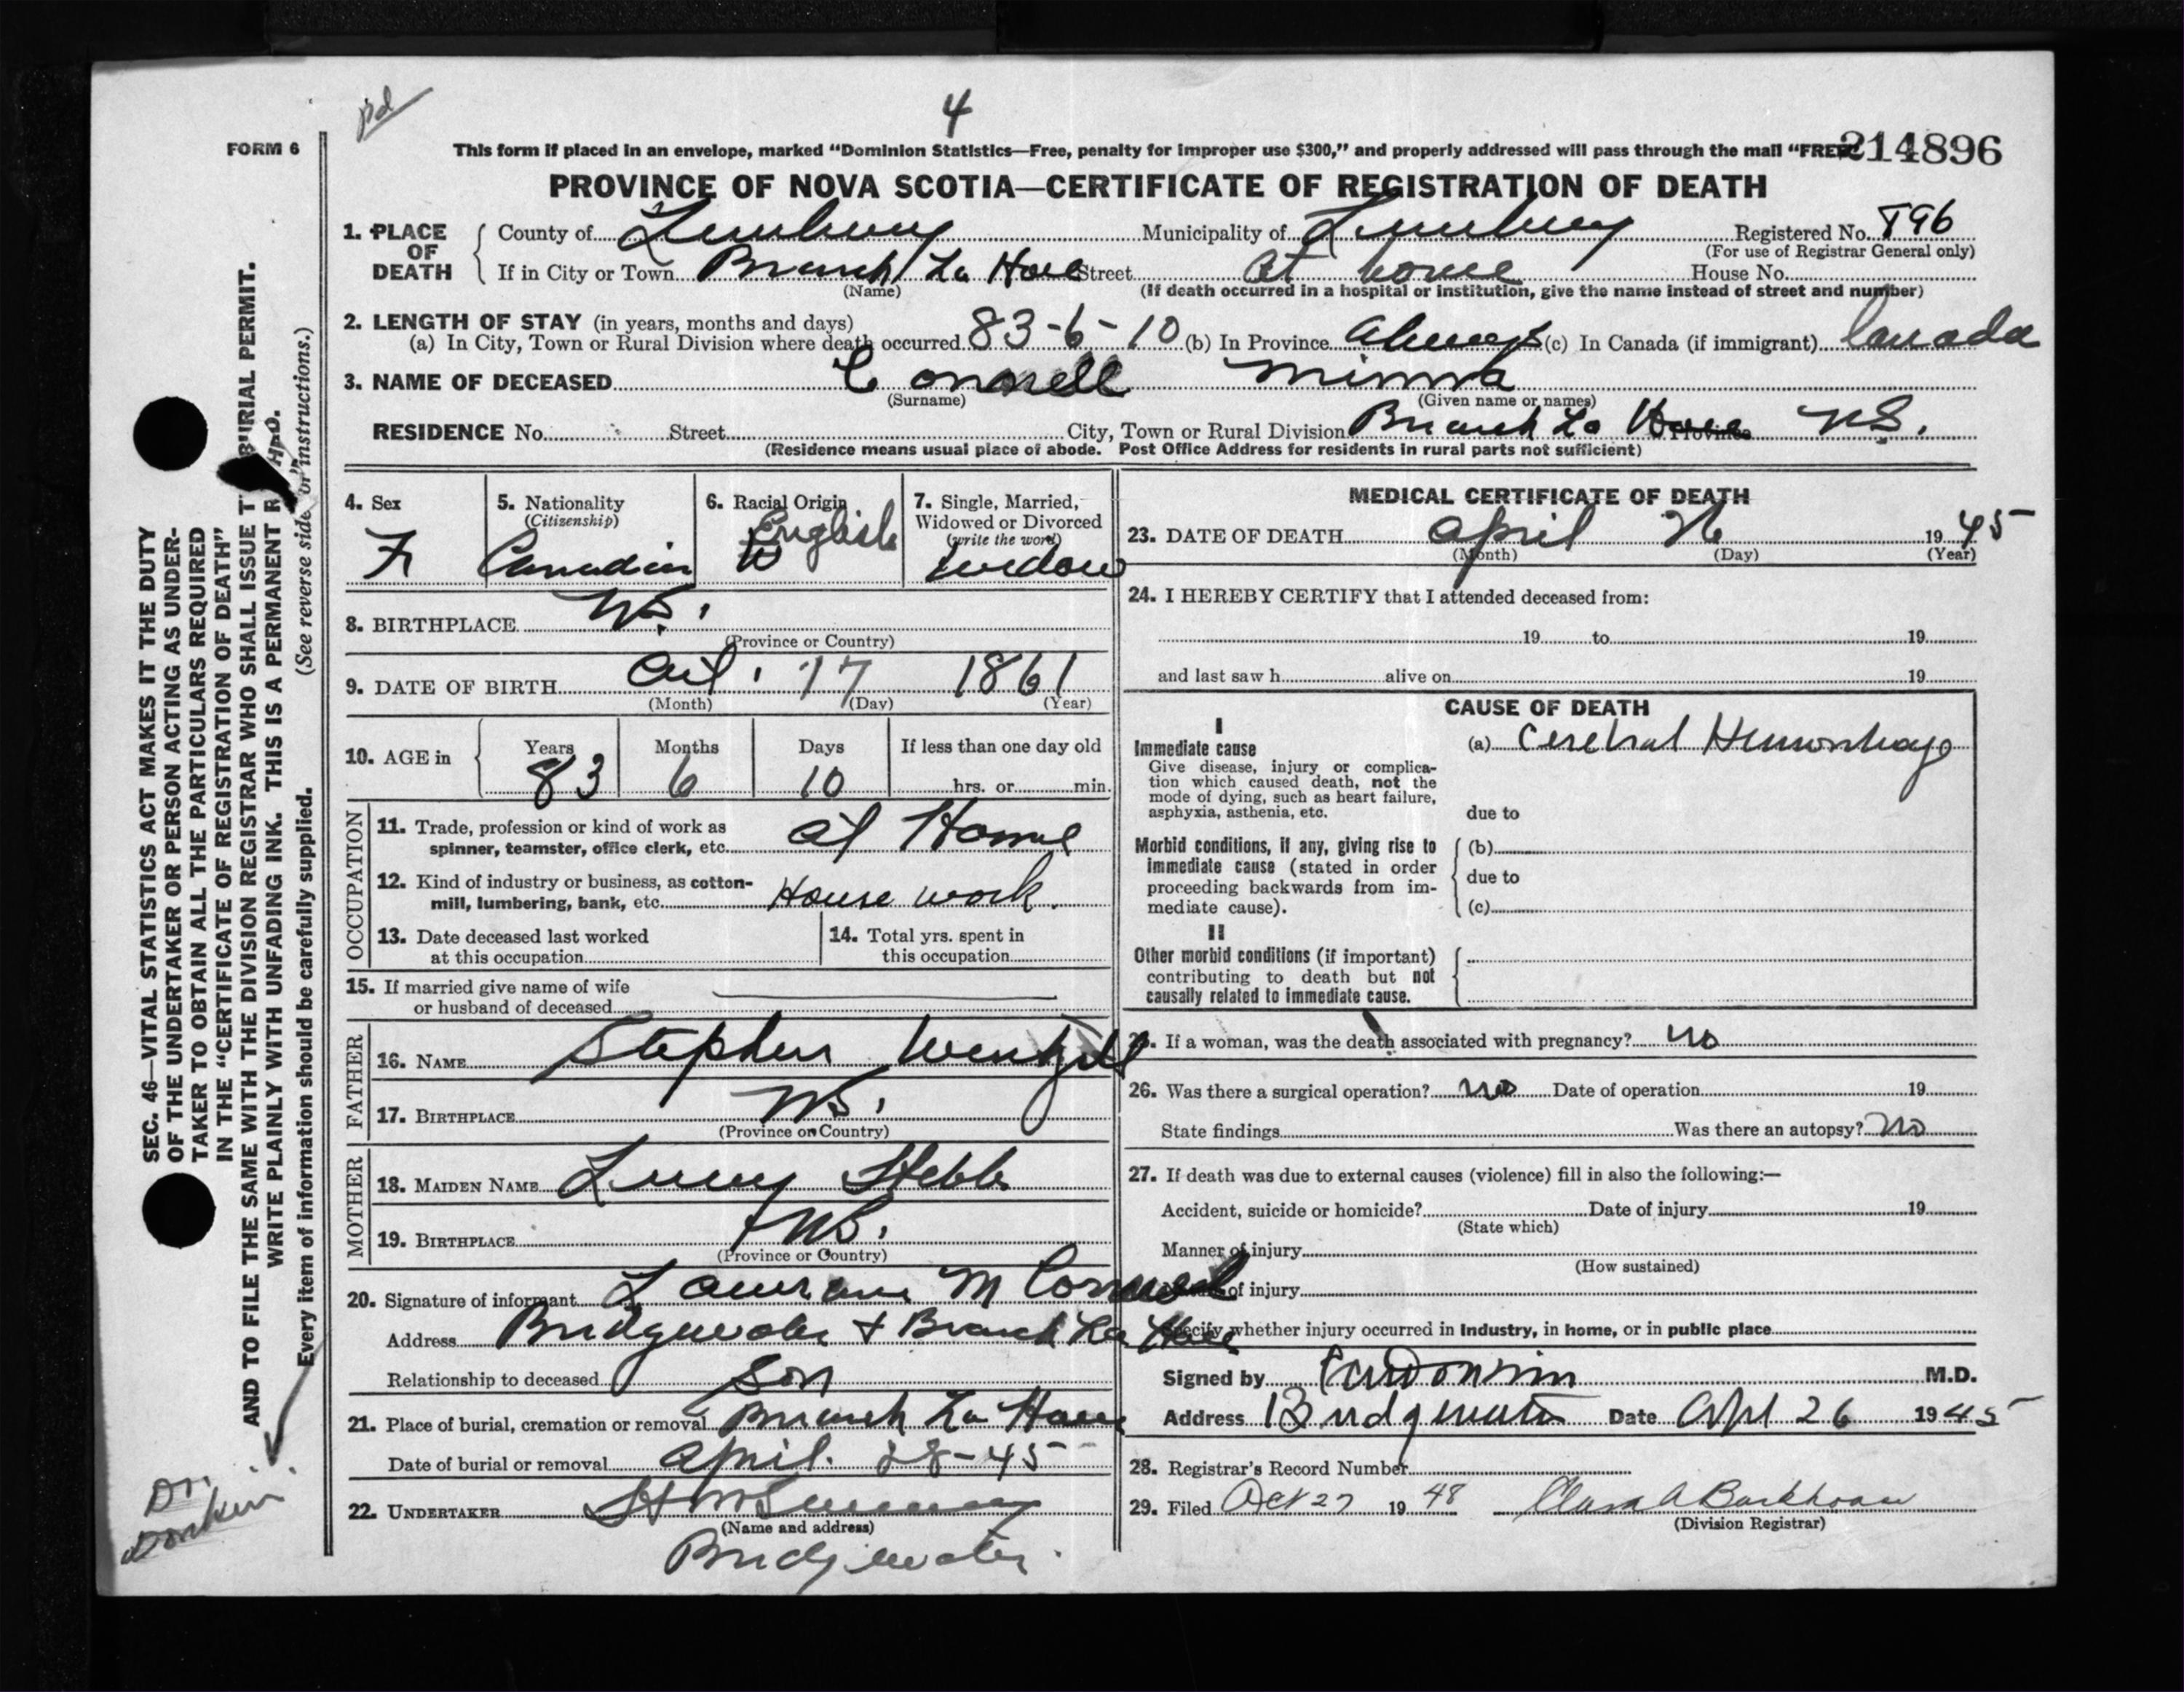 pd
4
FORM 6
This form if placed in an envelope, marked "Dominion Statistics—Free, penalty for improper use $300," and properly addressed will pass through the mail "FREE"
214896
PROVINCE OF NOVA SCOTIA—CERTIFICATE OF REGISTRATION OF DEATH
1. PLACE OF DEATH County of Lunenburg Municipality of Lunenburg Registered No. 896
(For use of Registrar General only)
If in City or Town Branch La Have Street At home House No.
(Name) (If death occurred in a hospital or institution, give the name instead of street and number)
2. LENGTH OF STAY (in years, months and days)
(a) In City, Town or Rural Division where death occurred 83-6-10 (b) In Province Always (c) In Canada (if immigrant) Canada
3. NAME OF DECEASED Connell Minna
(Surname) (Given name or names)
RESIDENCE No. Street City, Town or Rural Division Branch La Have Province N.S.
(Residence means usual place of abode. Post Office Address for residents in rural parts not sufficient)
4. Sex F
5. Nationality (Citizenship) Canadian
6. Racial Origin English W
7. Single, Married, Widowed or Divorced (write the word) Widow
8. BIRTHPLACE N.S.
(Province or Country)
9. DATE OF BIRTH Oct. 17 1861
(Month) (Day) (Year)
10. AGE in Years 83 Months 6 Days 10 If less than one day old
hrs. or min.
OCCUPATION
11. Trade, profession or kind of work as
spinner, teamster, office clerk, etc. at Home
12. Kind of industry or business, as cotton-
mill, lumbering, bank, etc. House work.
13. Date deceased last worked
at this occupation
14. Total yrs. spent in
this occupation
15. If married give name of wife
or husband of deceased
FATHER
16. NAME Stephen
17. BIRTHPLACE N.S.
(Province or Country)
MOTHER
18. MAIDEN NAME Lucy
19. BIRTHPLACE N.S.
(Province or Country)
20. Signature of informant M Connell
Address Bridgewater + Branch La Have
Relationship to deceased Son
21. Place of burial, cremation or removal Branch La Have
Date of burial or removal April. 28-45
22. UNDERTAKER
(Name and address)
Bridgewater.
MEDICAL CERTIFICATE OF DEATH
23. DATE OF DEATH April 26 1945
(Month) (Day) (Year)
24. I HEREBY CERTIFY that I attended deceased from:
19 to 19
and last saw h alive on 19
CAUSE OF DEATH
I
Immediate cause (a) Cerebral Hemorrhage
Give disease, injury or complica-
tion which caused death, not the
mode of dying, such as heart failure,
asphyxia, asthenia, etc. due to
Morbid conditions, if any, giving rise to (b)
immediate cause (stated in order
proceeding backwards from im- due to
mediate cause). (c)
II
Other morbid conditions (if important)
contributing to death but not
causally related to immediate cause.
If a woman, was the death associated with pregnancy? no
26. Was there a surgical operation? no Date of operation 19
State findings Was there an autopsy? No
27. If death was due to external causes (violence) fill in also the following:—
Accident, suicide or homicide? Date of injury 19
(State which)
Manner of injury
(How sustained)
of injury
Specify whether injury occurred in industry, in home, or in public place
Signed by M.D.
Address Bridgewater Date Apl 26 1945
28. Registrar's Record Number
29. Filed Oct 27 1948 Clara A Barkhouse
(Division Registrar)
SEC. 46—VITAL STATISTICS ACT MAKES IT THE DUTY
OF THE UNDERTAKER OR PERSON ACTING AS UNDER-
TAKER TO OBTAIN ALL THE PARTICULARS REQUIRED
IN THE "CERTIFICATE OF REGISTRATION OF DEATH"
AND TO FILE THE SAME WITH THE DIVISION REGISTRAR WHO SHALL ISSUE T BURIAL PERMIT.
WRITE PLAINLY WITH UNFADING INK. THIS IS A PERMANENT R
Every item of information should be carefully supplied. (See reverse side for instructions.)
Dr.
Donkin